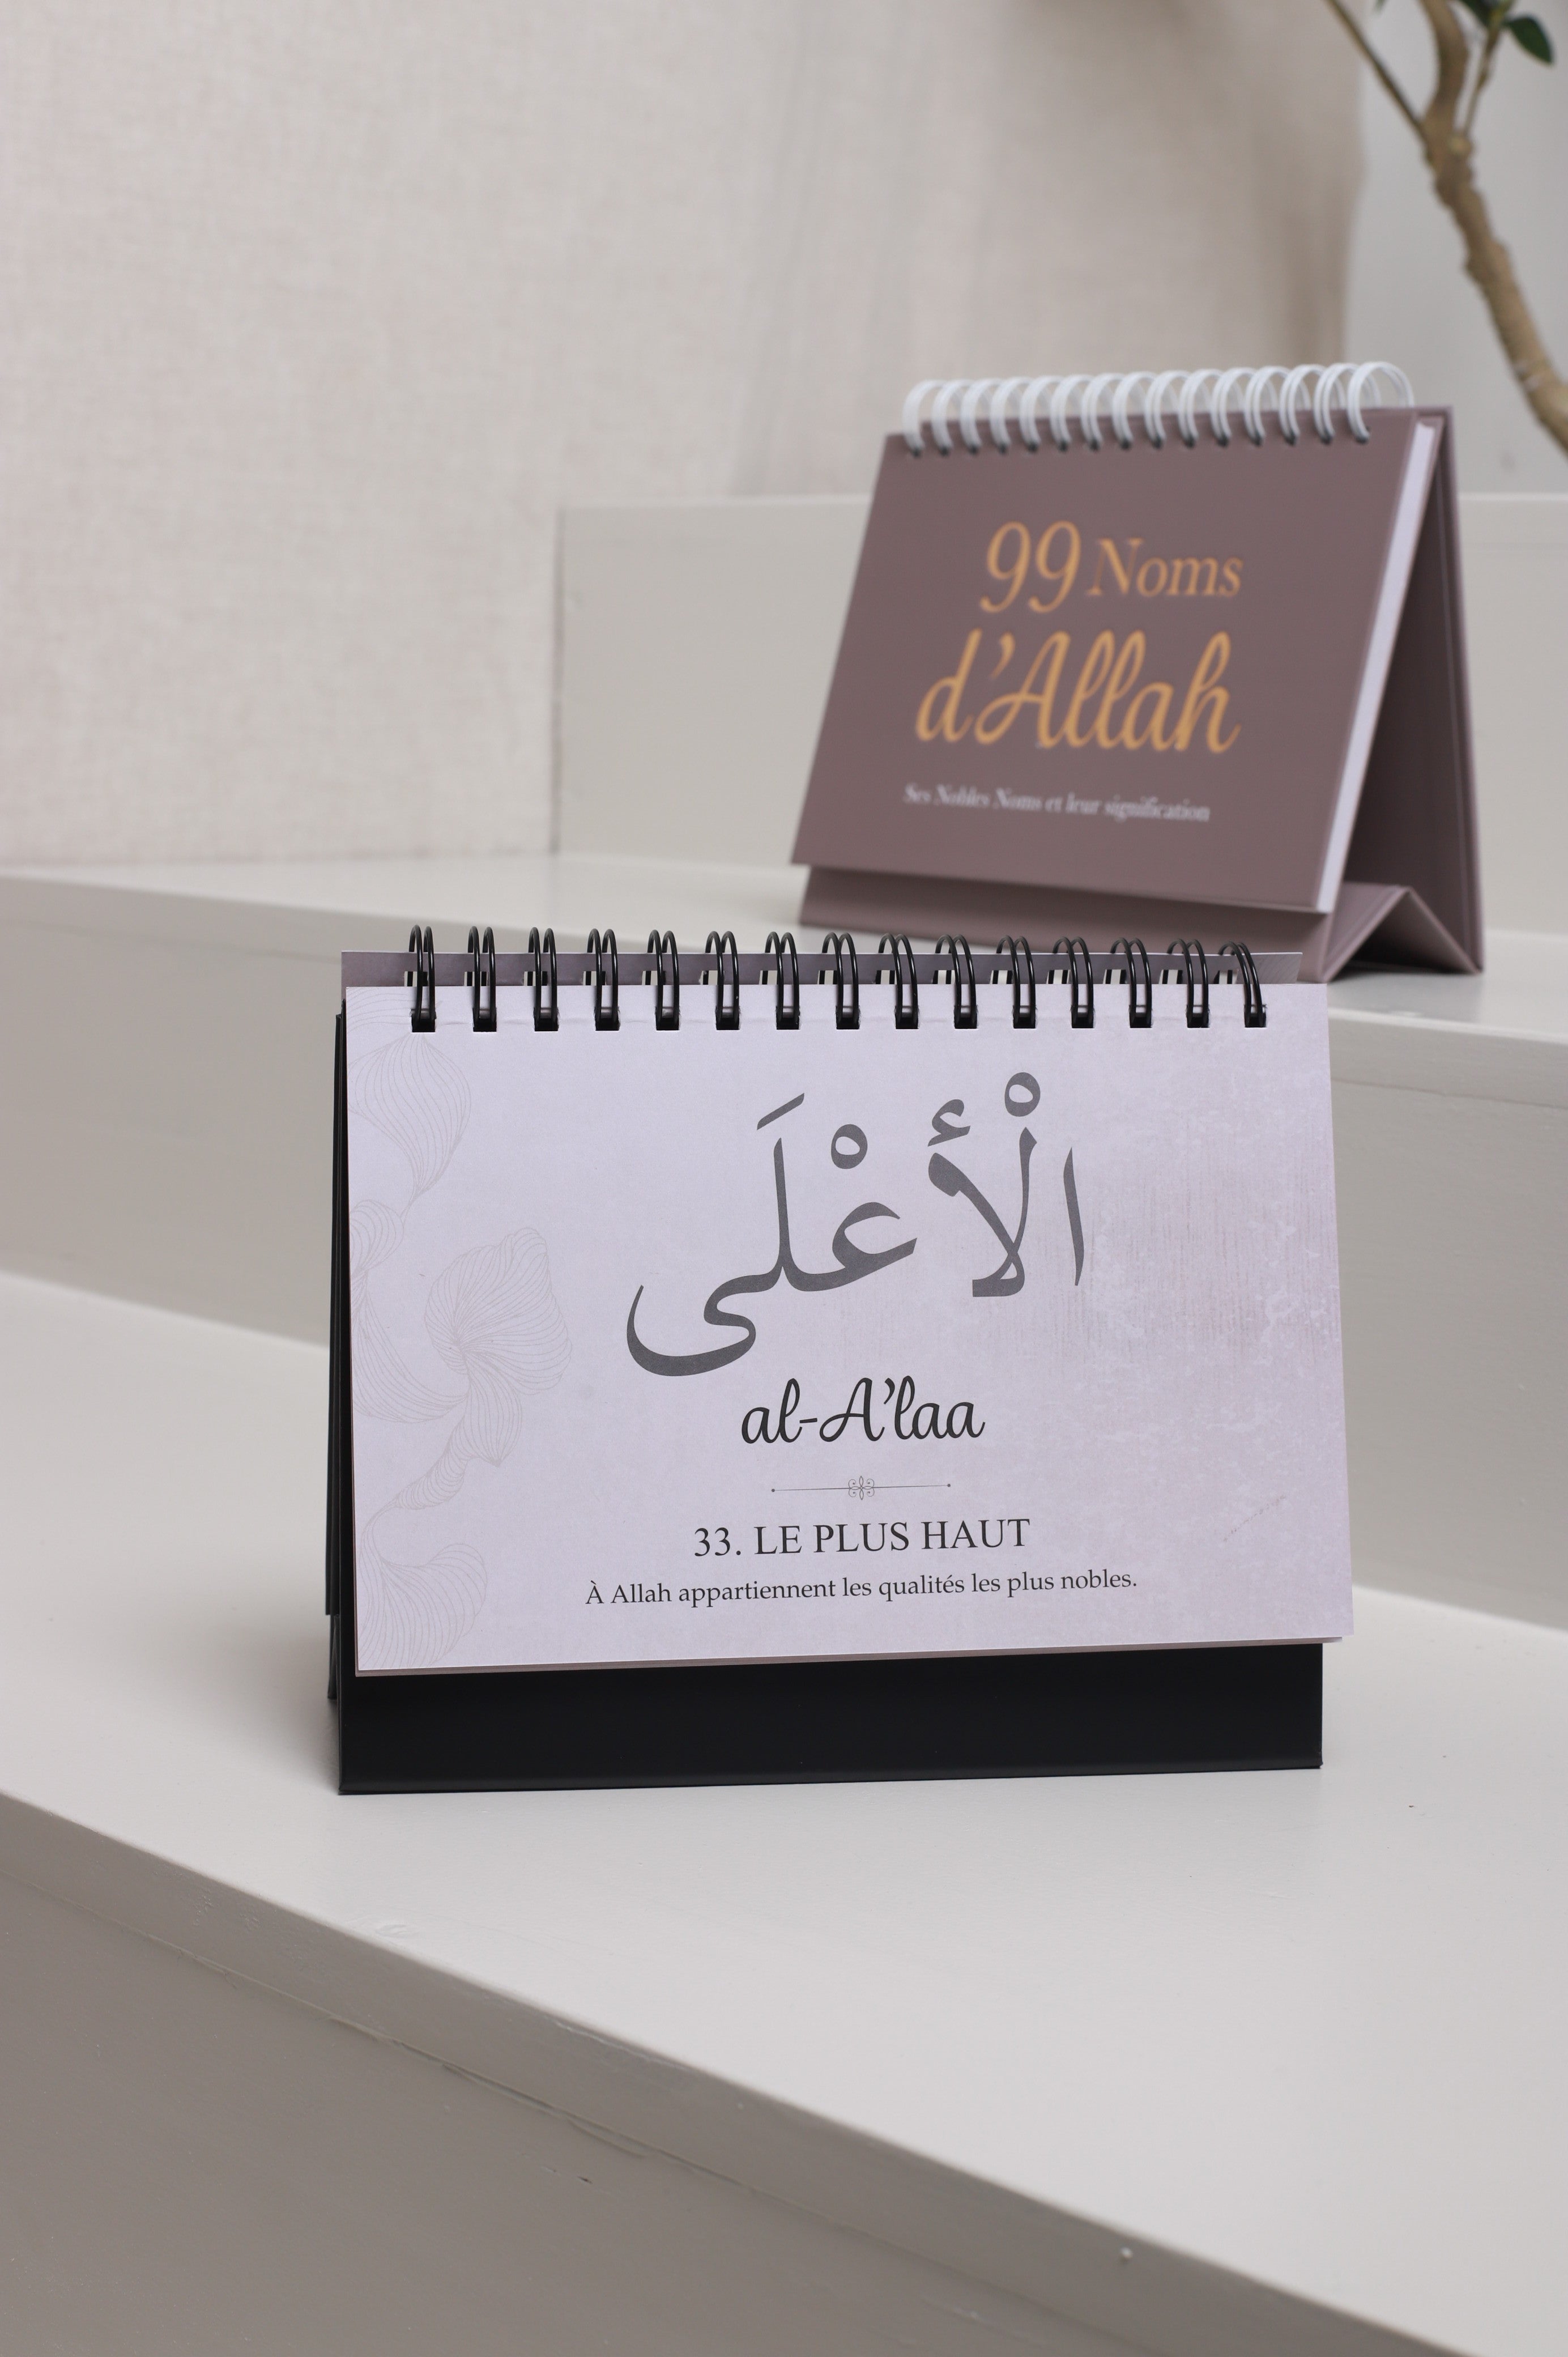 99 Noms
d'Allah
Ses Nobles Noms et leur signification
الْأَعْلَى
al-A'laa
33. LE PLUS HAUT
À Allah appartiennent les qualités les plus nobles.